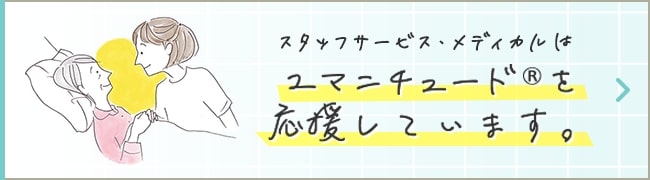 スタッフサービス・メディカルは
ユマニチュード®を
応援しています。